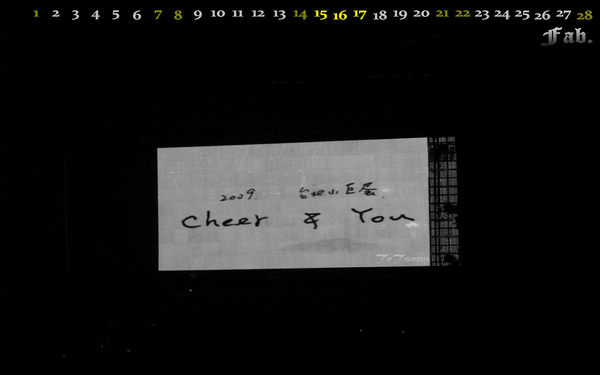 1 2 3 4 5 6 7 8 9 10 11 12 13 14 15 16 17 18 19 20 21 22 23 24 25 26 27 28
Fab.
2009. 台北小巨蛋
Cheer & You